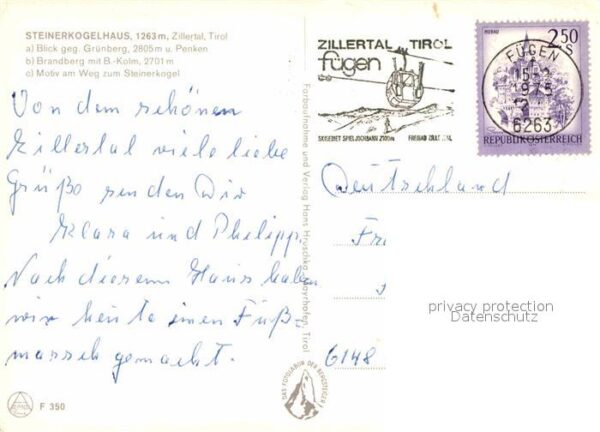 STEINERKOGELHAUS, 1263 m, Zillertal, Tirol
a) Blick geg. Grünberg, 2805 m u. Penken
b) Brandberg mit B.-Kolm, 2701 m
c) Motiv am Weg zum Steinerkogel
Von dem schönen
Zillertal viele liebe
Grüße senden Wir
Klara und Philipp.
Nach diesem Haus haben
wir heute einen Fuß-
marsch gemacht.
F 350
Farbaufnahme und Verlag Hans Hruschka, Mayrhofen, Tirol
DAS FOTOLABOR DER BERGSTEIGER
ZILLERTAL TIROL
fügen
SKIGEBIET SPIELJOCHBAHN 2100m FREIBAD ZILLERTAL
2.50
FÜGEN
1975
6263
REPUBLIK ÖSTERREICH
Deutschland
Fr
6148
privacy protection
Datenschutz